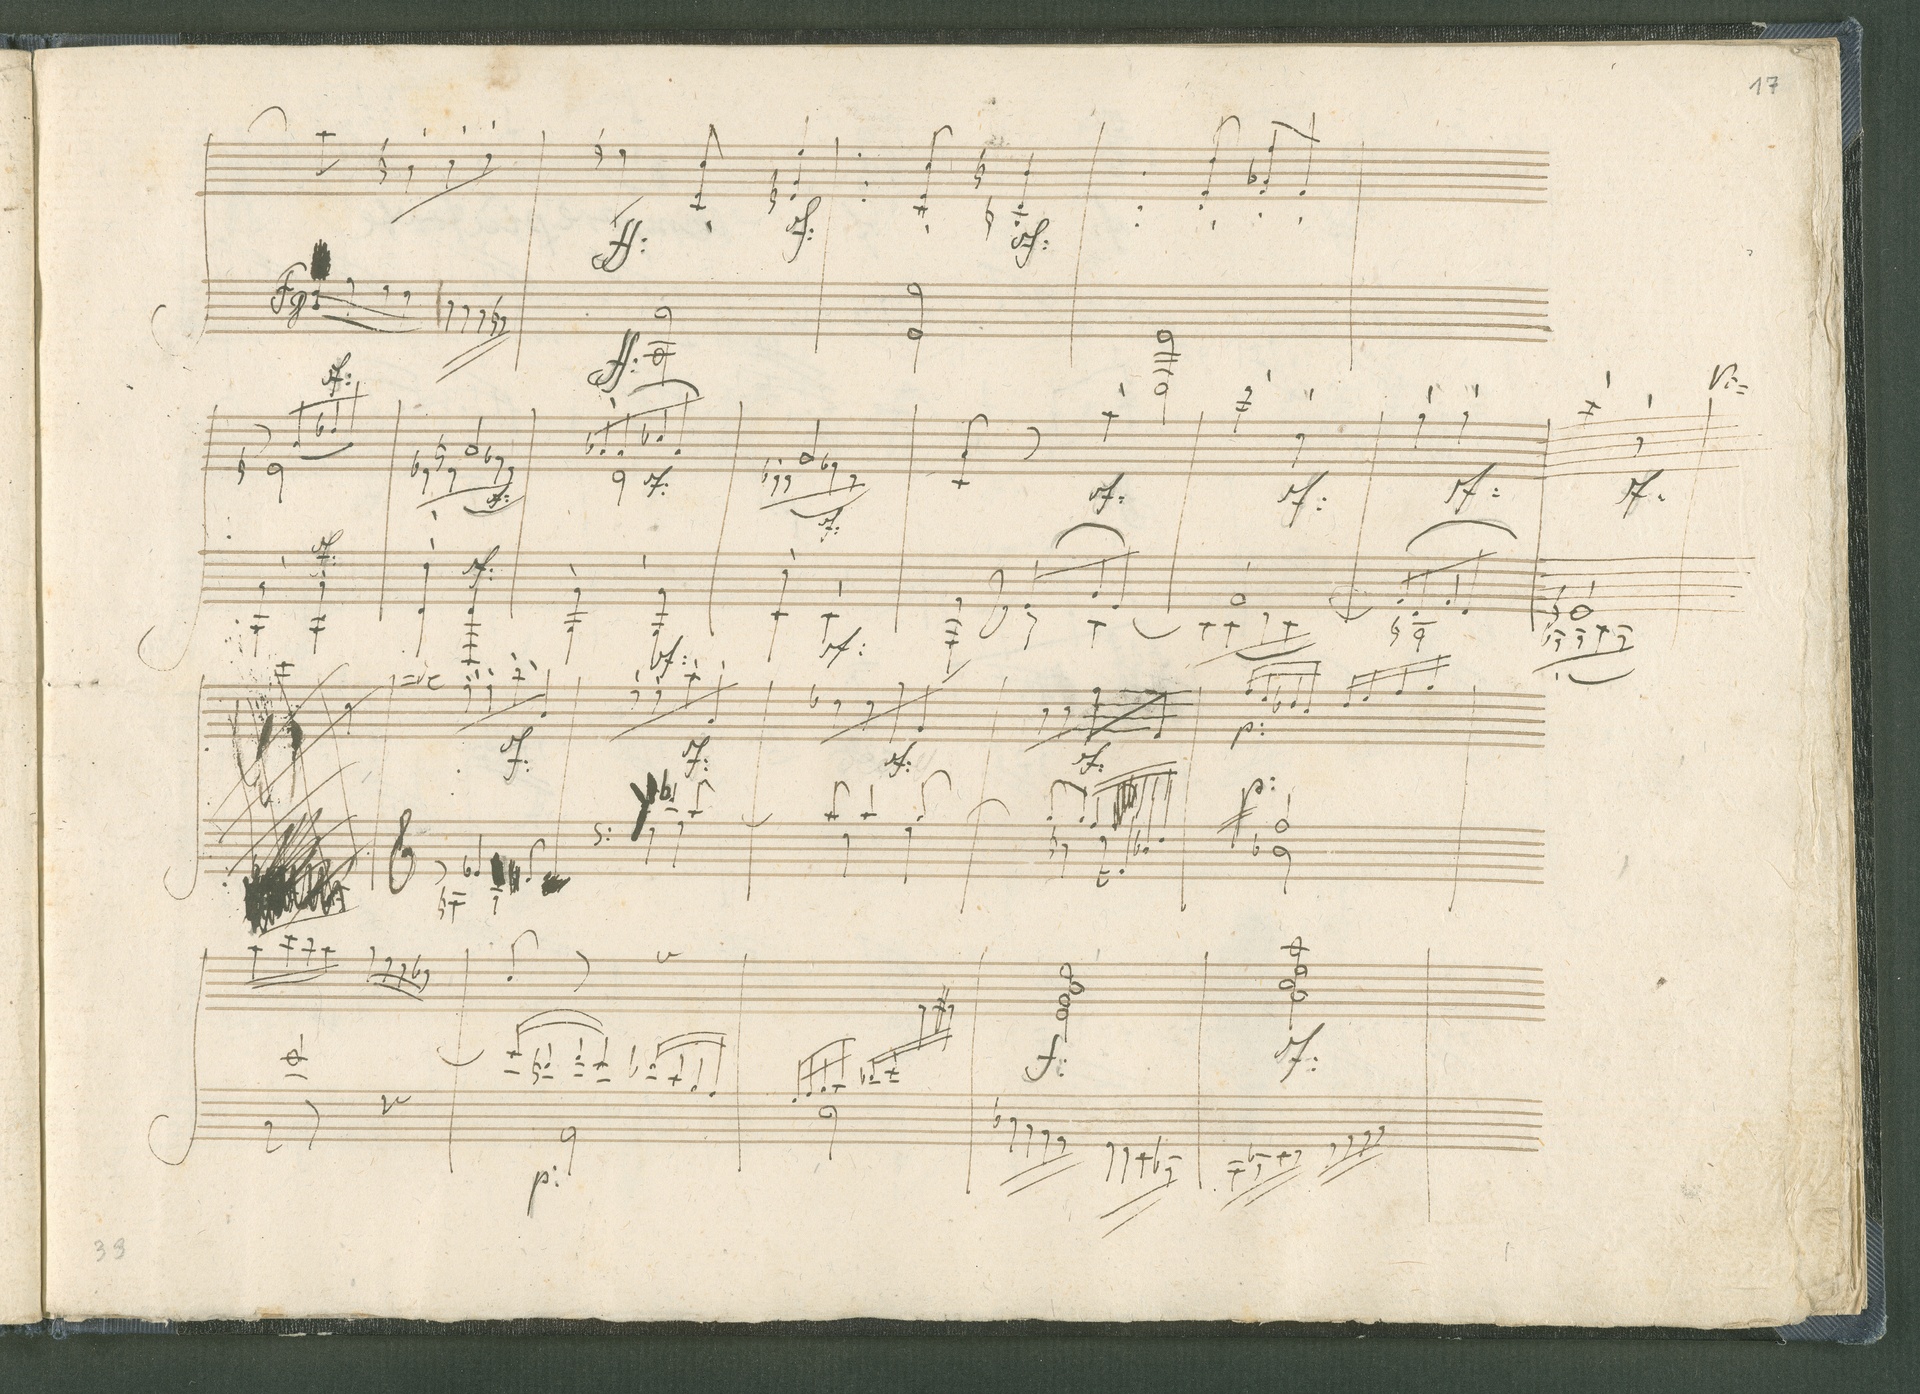 17
ff: sf: sf:
Fg
ff:
sf: Vi=
sf: sf: sf: sf: sf: sf: sf:
sf: sf:
sf: sf:
=de
sf: sf: sf: sf: p:
s: p:
f: sf:
p:
39